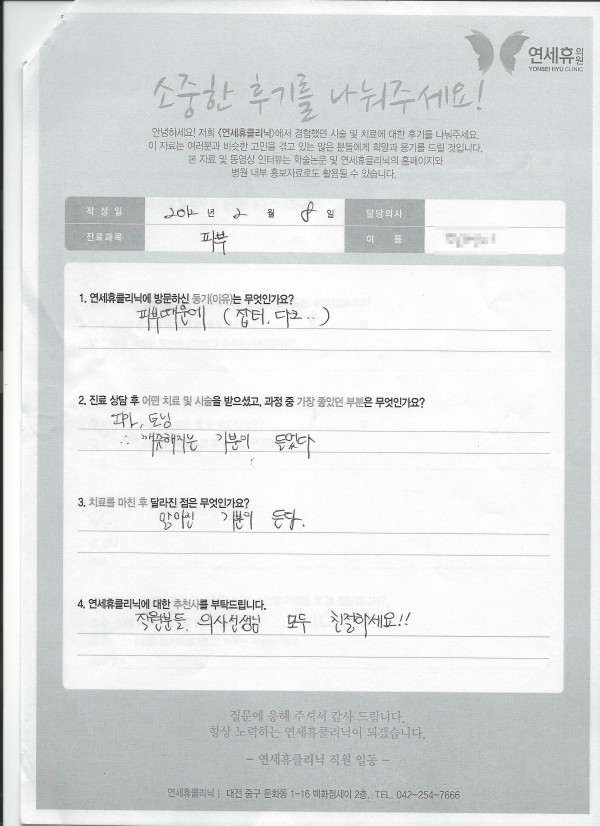 연세휴의원
YONSEI HYU CLINIC
소중한 후기를 나눠주세요!
안녕하세요! 저희 <연세휴클리닉>에서 경험했던 시술 및 치료에 대한 후기를 나눠주세요.
이 자료는 여러분과 비슷한 고민을 겪고 있는 많은 분들에게 희망과 용기를 드릴 것입니다.
본 자료 및 동영상 인터뷰는 학술논문 및 연세휴클리닉의 홈페이지와
병원 내부 홍보자료로도 활용될 수 있습니다.
작성일 2012 년 2 월 8 일 담당의사
진료과목 피부 이름
1. 연세휴클리닉에 방문하신 동기(이유)는 무엇인가요?
피부때문에 (잡티, 다크..)
2. 진료 상담 후 어떤 치료 및 시술을 받으셨고, 과정 중 가장 좋았던 부분은 무엇인가요?
토닝
∴ 깨끗해지는 기분이 들었다
3. 치료를 마친 후 달라진 점은 무엇인가요?
맑아진 기분이 든다.
4. 연세휴클리닉에 대한 추천사를 부탁드립니다.
직원분들, 의사선생님 모두 친절하세요!!
질문에 응해 주셔서 감사 드립니다.
항상 노력하는 연세휴클리닉이 되겠습니다.
- 연세휴클리닉 직원 일동 -
연세휴클리닉 | 대전 중구 문화동 1-16 백화점세이 2층. TEL. 042-254-7666